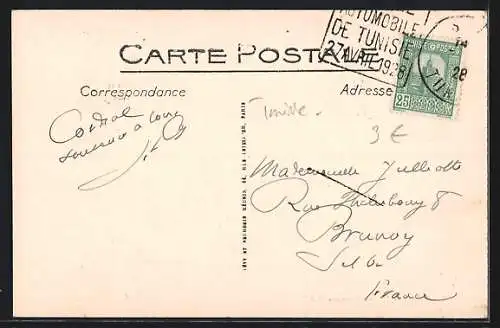 AUTOMOBILE
DE TUNISIE
27 AVRIL 1928
28
TUNIS
25
CARTE POSTALE
Correspondance
Adresse
Tunisie
3€
Cordial
souvenir à tous
Mademoiselle Julliotte
Rue 8
Brunoy
S et O
France